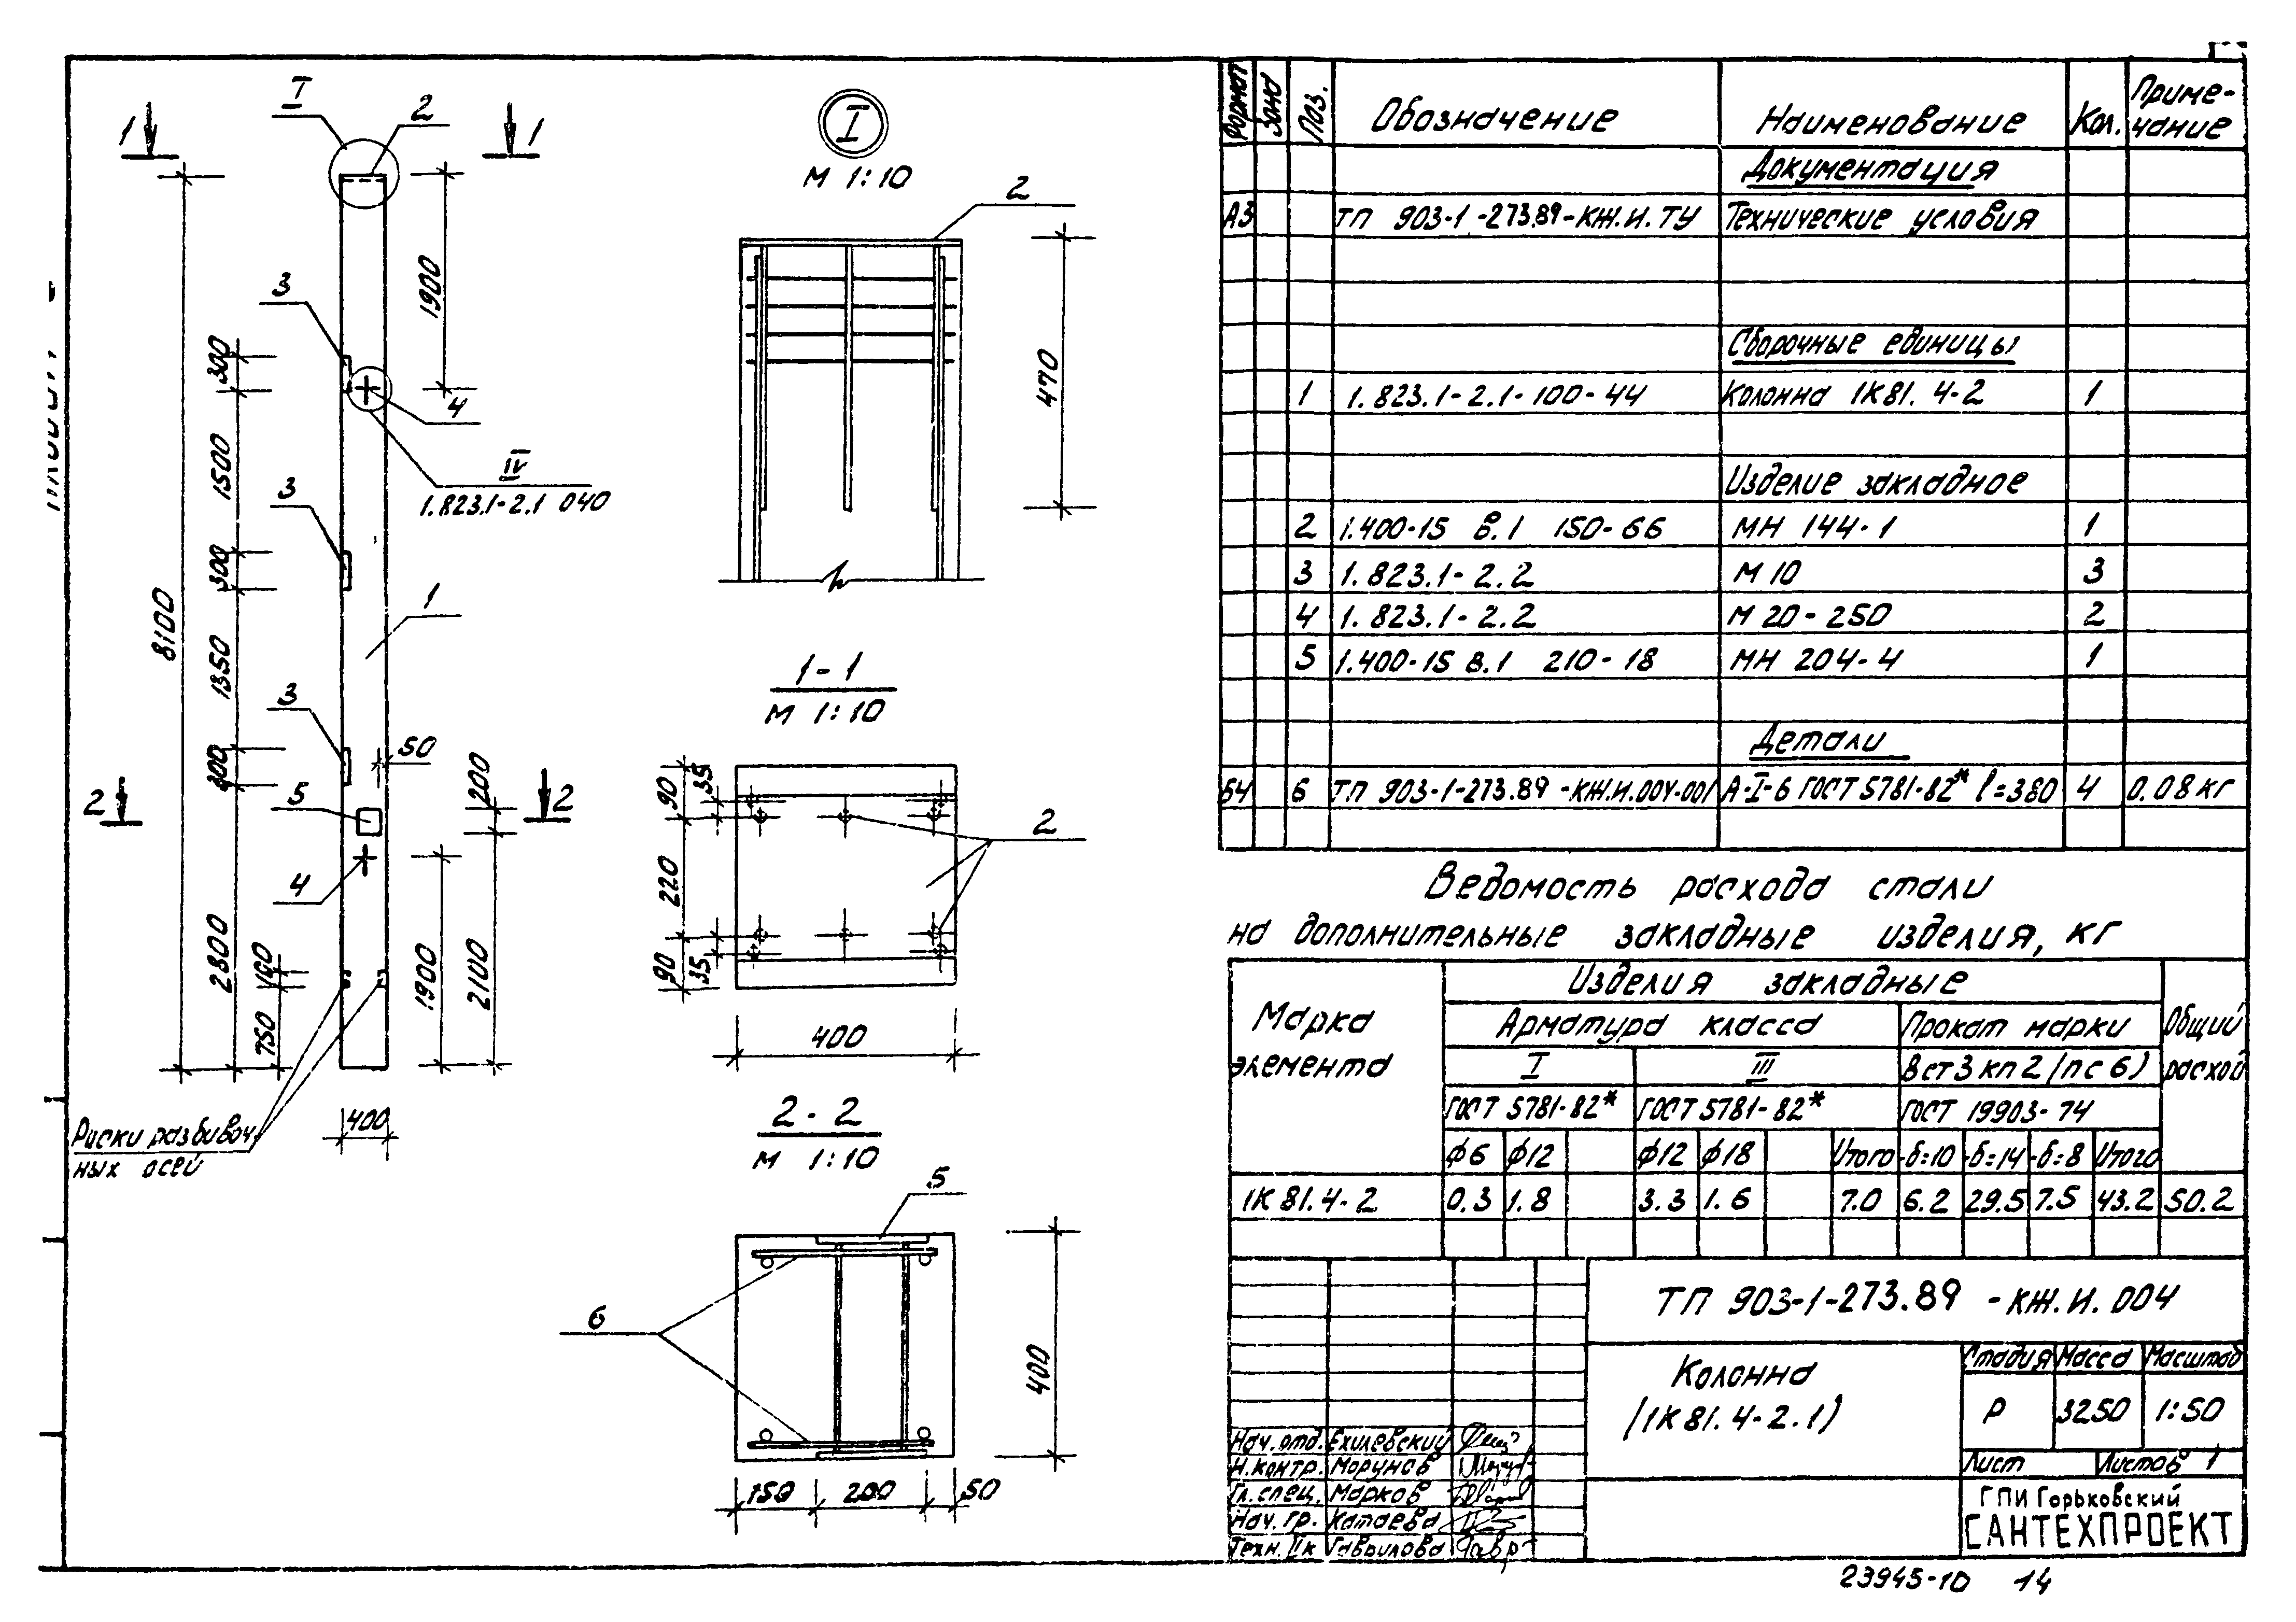 I
2
1
1
I
М 1:10
2
3
1900
300
470
4
IV
1.823.1-2.1 040
1500
3
300
8100
1
1350
1-1
М 1:10
3
50
300
200
2
5
2
4
2800
100
750
1900
2100
90
35
220
90
35
2
400
Риски разбивоч-
ных осей
400
2-2
М 1:10
5
6
400
150 200 50
Формат Зона Поз. Обозначение Наименование Кол. Приме-
чание
Документация
А3 ТП 903-1-273.89-КЖ.И.ТУ Технические условия
Сборочные единицы
1 1.823.1-2.1-100-44 Колонна 1К81.4-2 1
Изделие закладное
2 1.400-15 в.1 150-66 МН 144-1 1
3 1.823.1-2.2 М10 3
4 1.823.1-2.2 М20-250 2
5 1.400-15 в.1 210-18 МН 204-4 1
Детали
БЧ 6 ТП 903-1-273.89-КЖ.И.004-001 А-I-6 ГОСТ 5781-82* l=380 4 0.08кг
Ведомость расхода стали
на дополнительные закладные изделия, кг
Марка
элемента
Изделия закладные
Арматура класса Прокат марки Общий
расход
I III Вст3кп2(пс6)
ГОСТ 5781-82* ГОСТ 5781-82* ГОСТ 19903-74
ф6 ф12 ф12 ф18 Итого -б=10 -б=14 -б=8 Итого
1К81.4-2 0.3 1.8 3.3 1.6 7.0 6.2 29.5 7.5 43.2 50.2
ТП 903-1-273.89 -КЖ.И.004
Колонна
(1К81.4-2.1)
Стадия Масса Масштаб
Р 3250 1:50
Лист Листов 1
Нач.отд. Ехилевский
Н.контр. Морунов
Гл.спец. Марков
Нач.гр. Катаева
Техн.IIк Гаврилова
ГПИ Горьковский
САНТЕХПРОЕКТ
23945-10 14